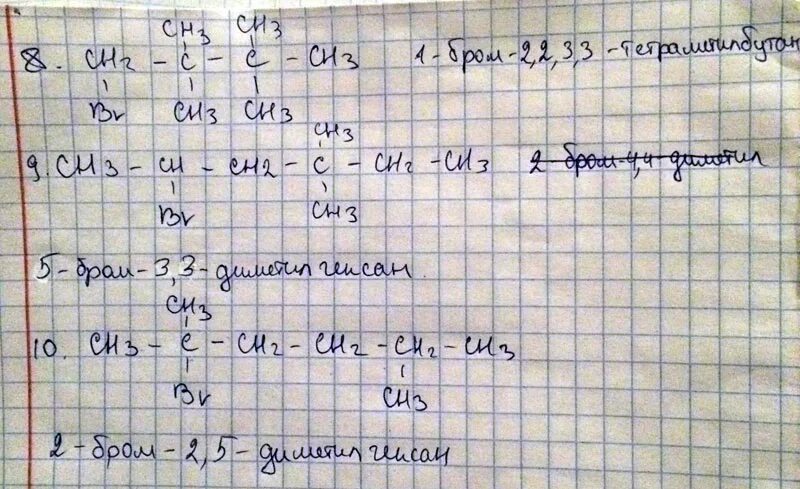 CH3 CH3
8. CH2 - C - C - CH3 1-бром-2,2,3,3-тетраметилбутан
Br CH3 CH3
CH3
9. CH3 - CH - CH2 - C - CH2 - CH3 2 бром-4,4-диметил
Br CH3
5-бром-3,3-диметилгексан.
CH3
10. CH3 - C - CH2 - CH2 - CH2 - CH3
Br CH3
2-бром-2,5-диметилгексан